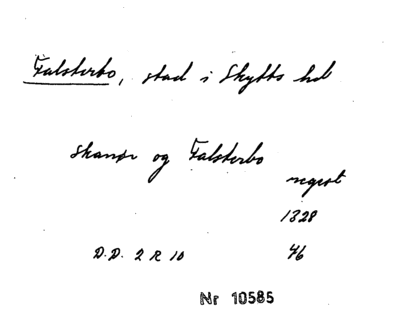 Falsterbo, stad i Skytts hd
Skanør og Falsterbo
regest
1328
D.D. 2 R 10 46
Nr 10585